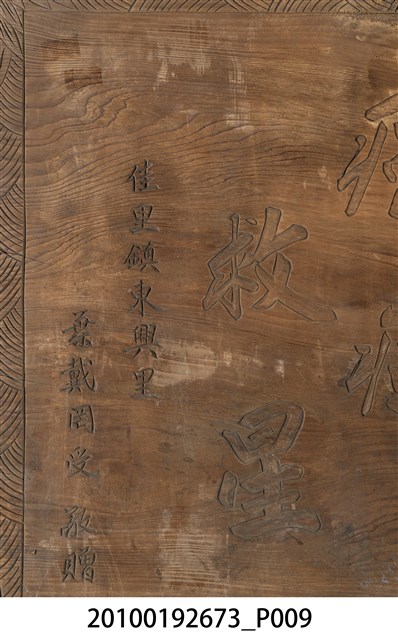 救星
佳里鎮東興里
葉戴罔受 敬贈
20100192673_P009